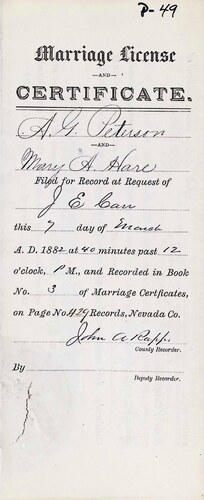 P-49
Marriage License
—AND—
CERTIFICATE.
A. G. Peterson
—AND—
Mary A. Hare
Filed for Record at Request of
J E Carr
this 7 day of March
A. D. 1882 at 40 minutes past 12
o'clock, P M., and Recorded in Book
No. 3 of Marriage Certficates,
on Page No 429 Records, Nevada Co.
John A Rapp
County Recorder.
By
Deputy Recorder.